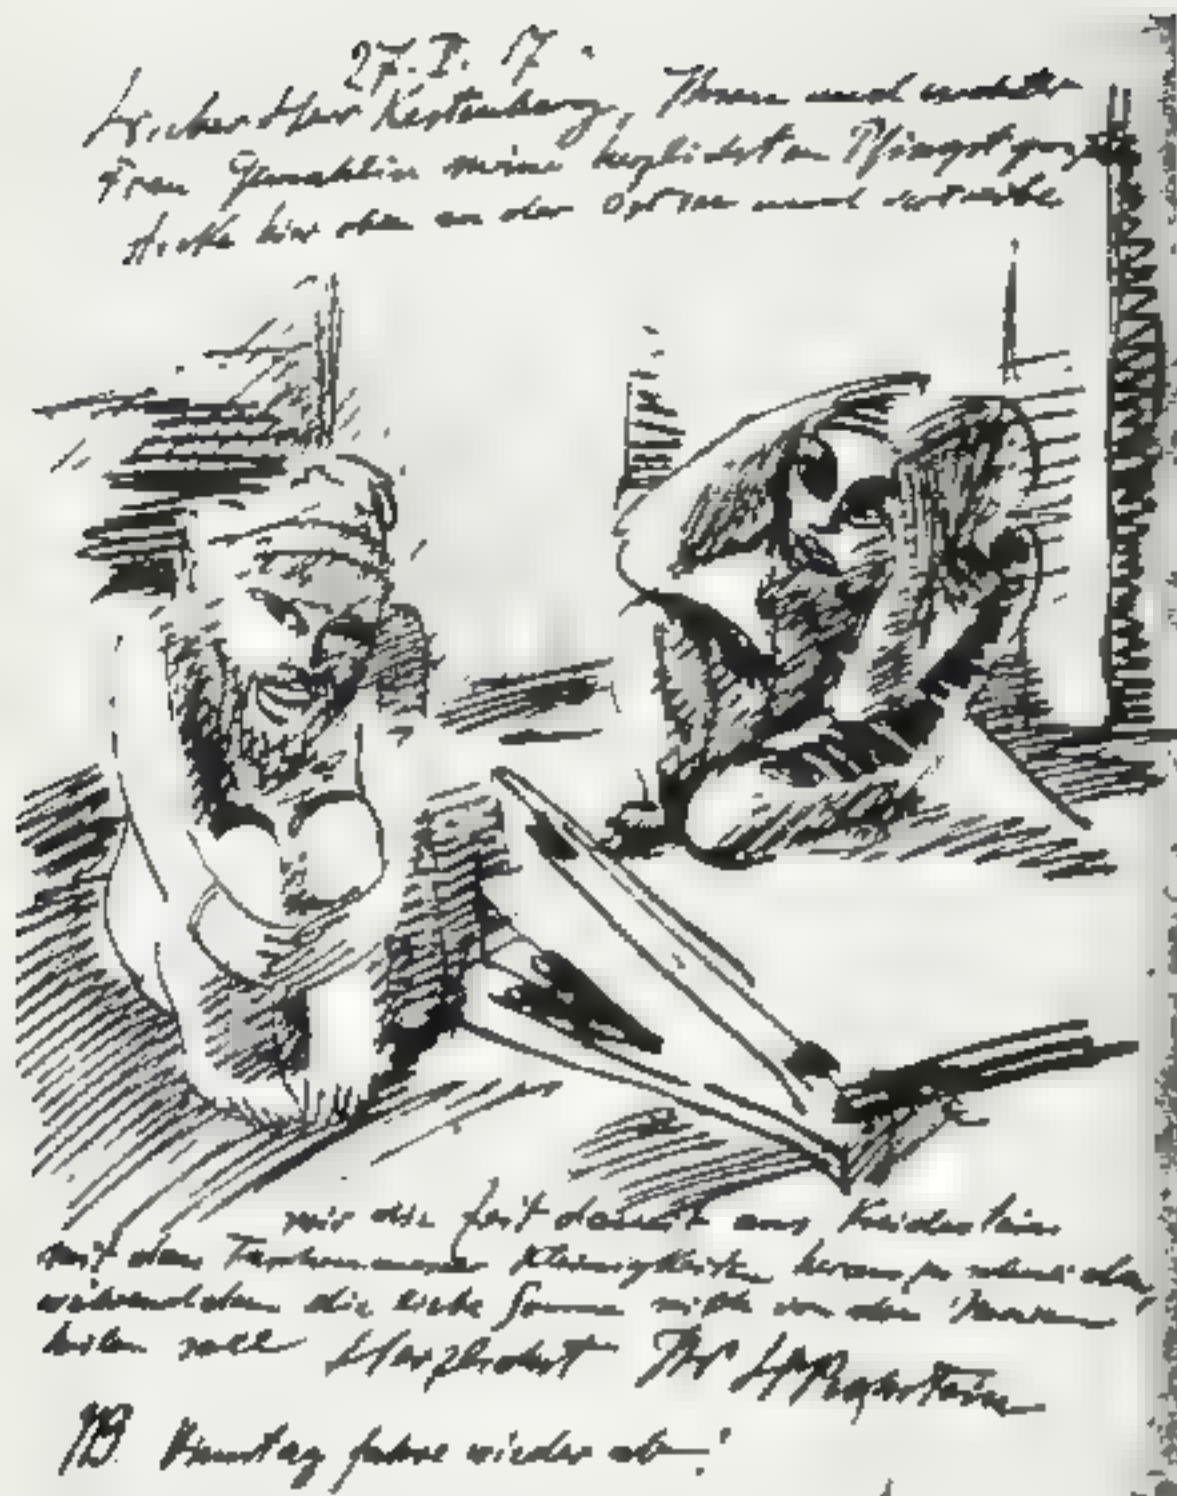 27. V. 17.
Lieber Herr Kestenberg, Ihnen und
Frau Gemahlin meine herzlichsten
stecke hier oben an der Ostsee und vertreibe
mir die Zeit damit aus Kreidestein
mit dem Taschenmesser Kleinigkeiten
währenddem die liebe Sonne mich von den
heilen soll Herzlichst Ihr
NB. Dienstag fahre wieder ab!